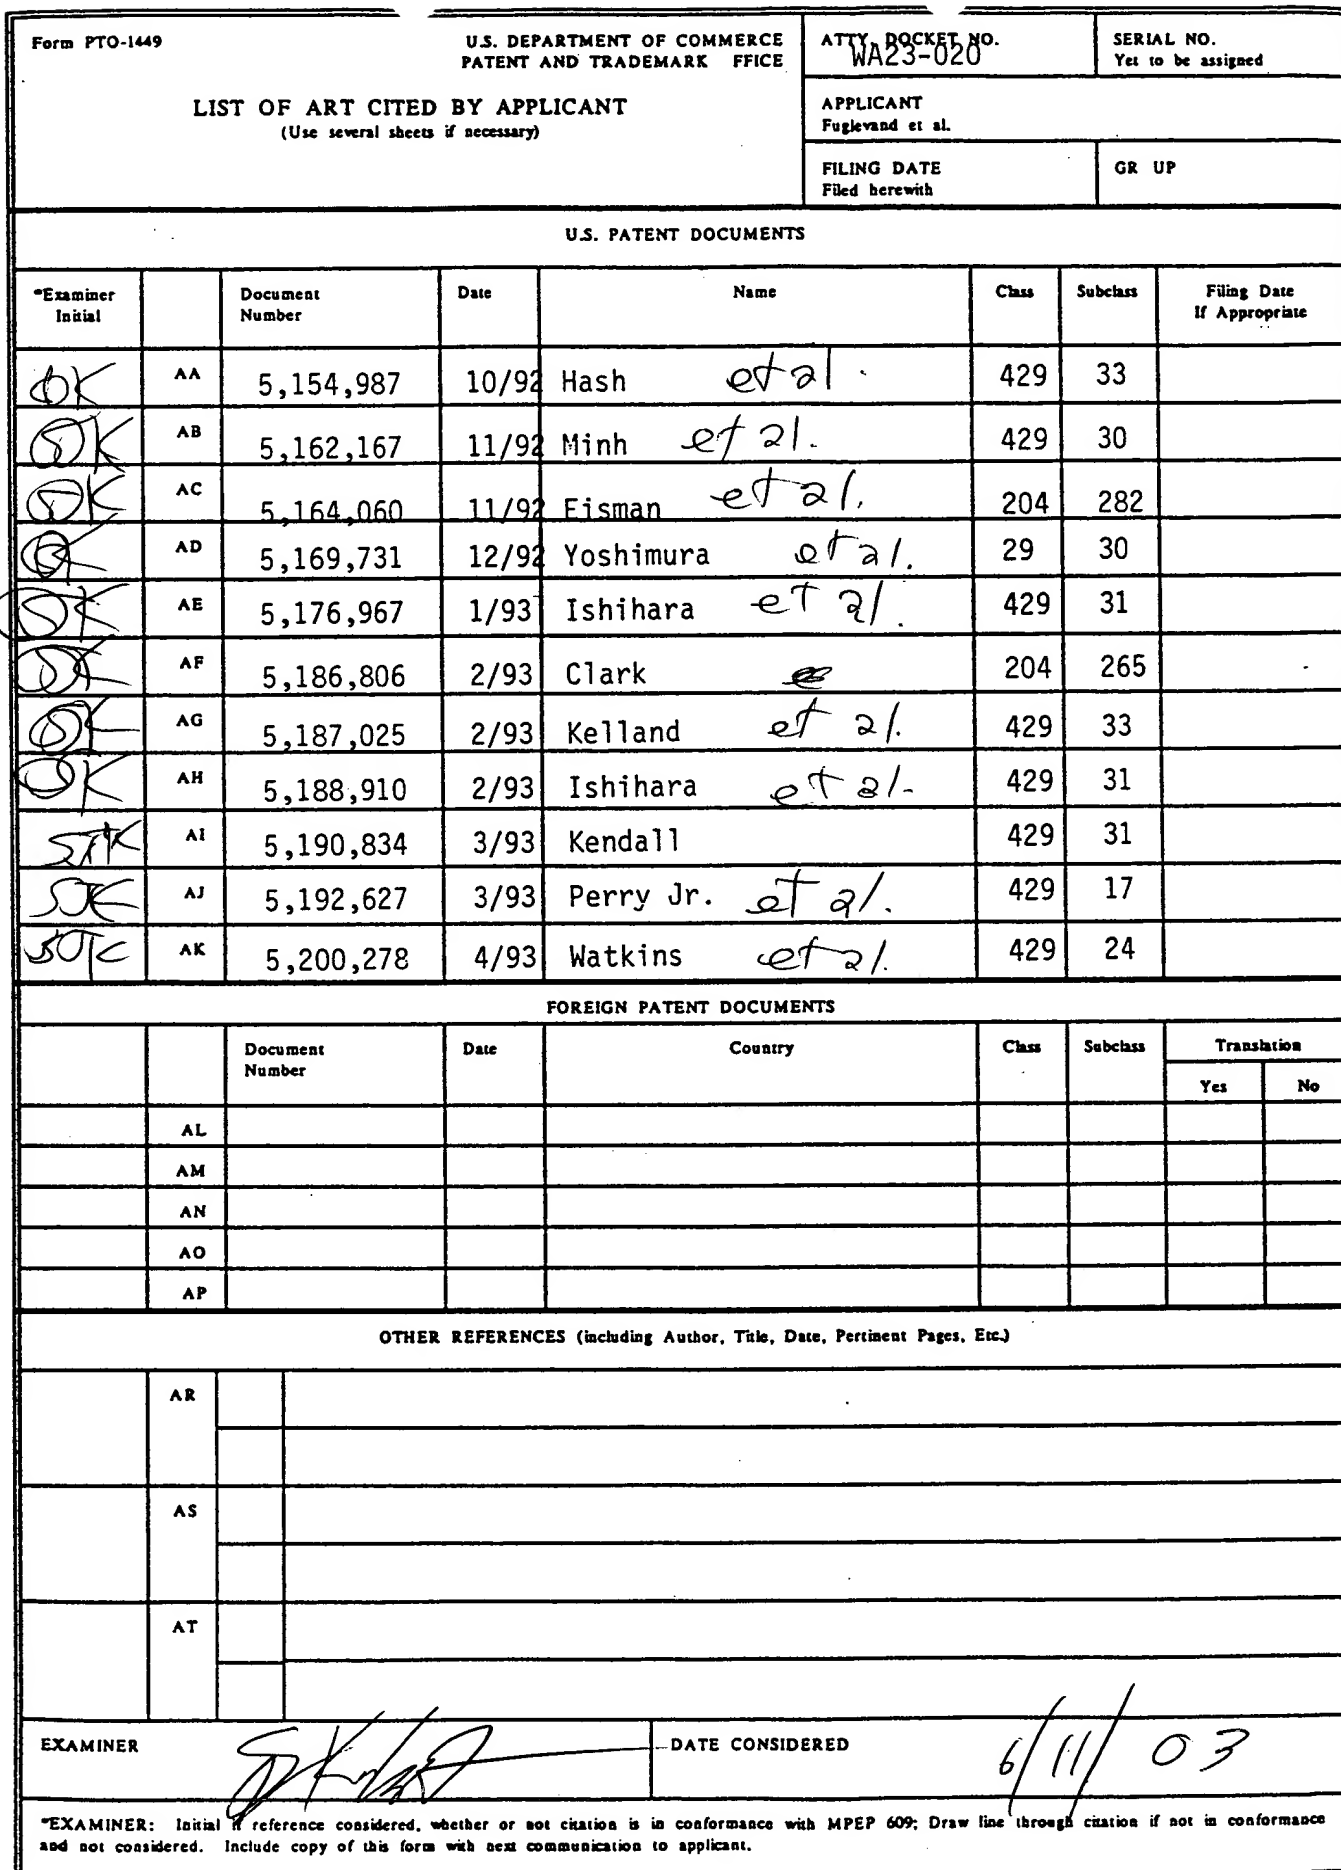 Form PTO-1449
U.S. DEPARTMENT OF COMMERCE
PATENT AND TRADEMARK FFICE
ATTY. DOCKET NO.
WA23-020
SERIAL NO.
Yet to be assigned
LIST OF ART CITED BY APPLICANT
(Use several sheets if necessary)
APPLICANT
Fuglevand et al.
FILING DATE
Filed herewith
GR UP
U.S. PATENT DOCUMENTS
*Examiner Initial Document Number Date Name Class Subclass Filing Date If Appropriate
AA 5,154,987 10/92 Hash et al. 429 33
AB 5,162,167 11/92 Minh et al. 429 30
AC 5,164,060 11/92 Eisman et al. 204 282
AD 5,169,731 12/92 Yoshimura et al. 29 30
AE 5,176,967 1/93 Ishihara et al. 429 31
AF 5,186,806 2/93 Clark 204 265
AG 5,187,025 2/93 Kelland et al. 429 33
AH 5,188,910 2/93 Ishihara et al. 429 31
AI 5,190,834 3/93 Kendall 429 31
AJ 5,192,627 3/93 Perry Jr. et al. 429 17
AK 5,200,278 4/93 Watkins et al. 429 24
FOREIGN PATENT DOCUMENTS
Document Number Date Country Class Subclass Translation
Yes No
AL
AM
AN
AO
AP
OTHER REFERENCES (including Author, Title, Date, Pertinent Pages, Etc.)
AR
AS
AT
EXAMINER
DATE CONSIDERED 6/11/03
*EXAMINER: Initial if reference considered, whether or not citation is in conformance with MPEP 609; Draw line through citation if not in conformance
and not considered. Include copy of this form with next communication to applicant.